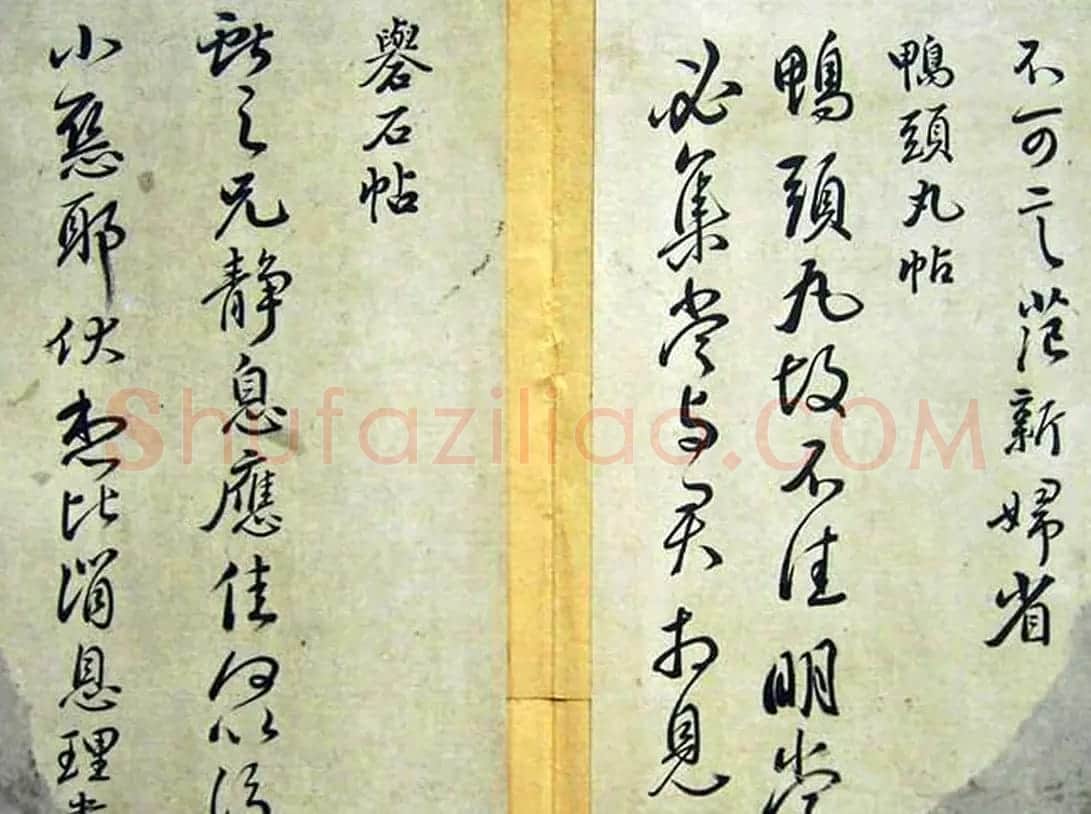 不可言范新婦省
鴨頭丸帖
鴨頭丸故不佳明當
必集當与君相見
礜石帖
献之兄静息應佳何以復
小惡耶伏想比消息理
Shufaziliao.COM